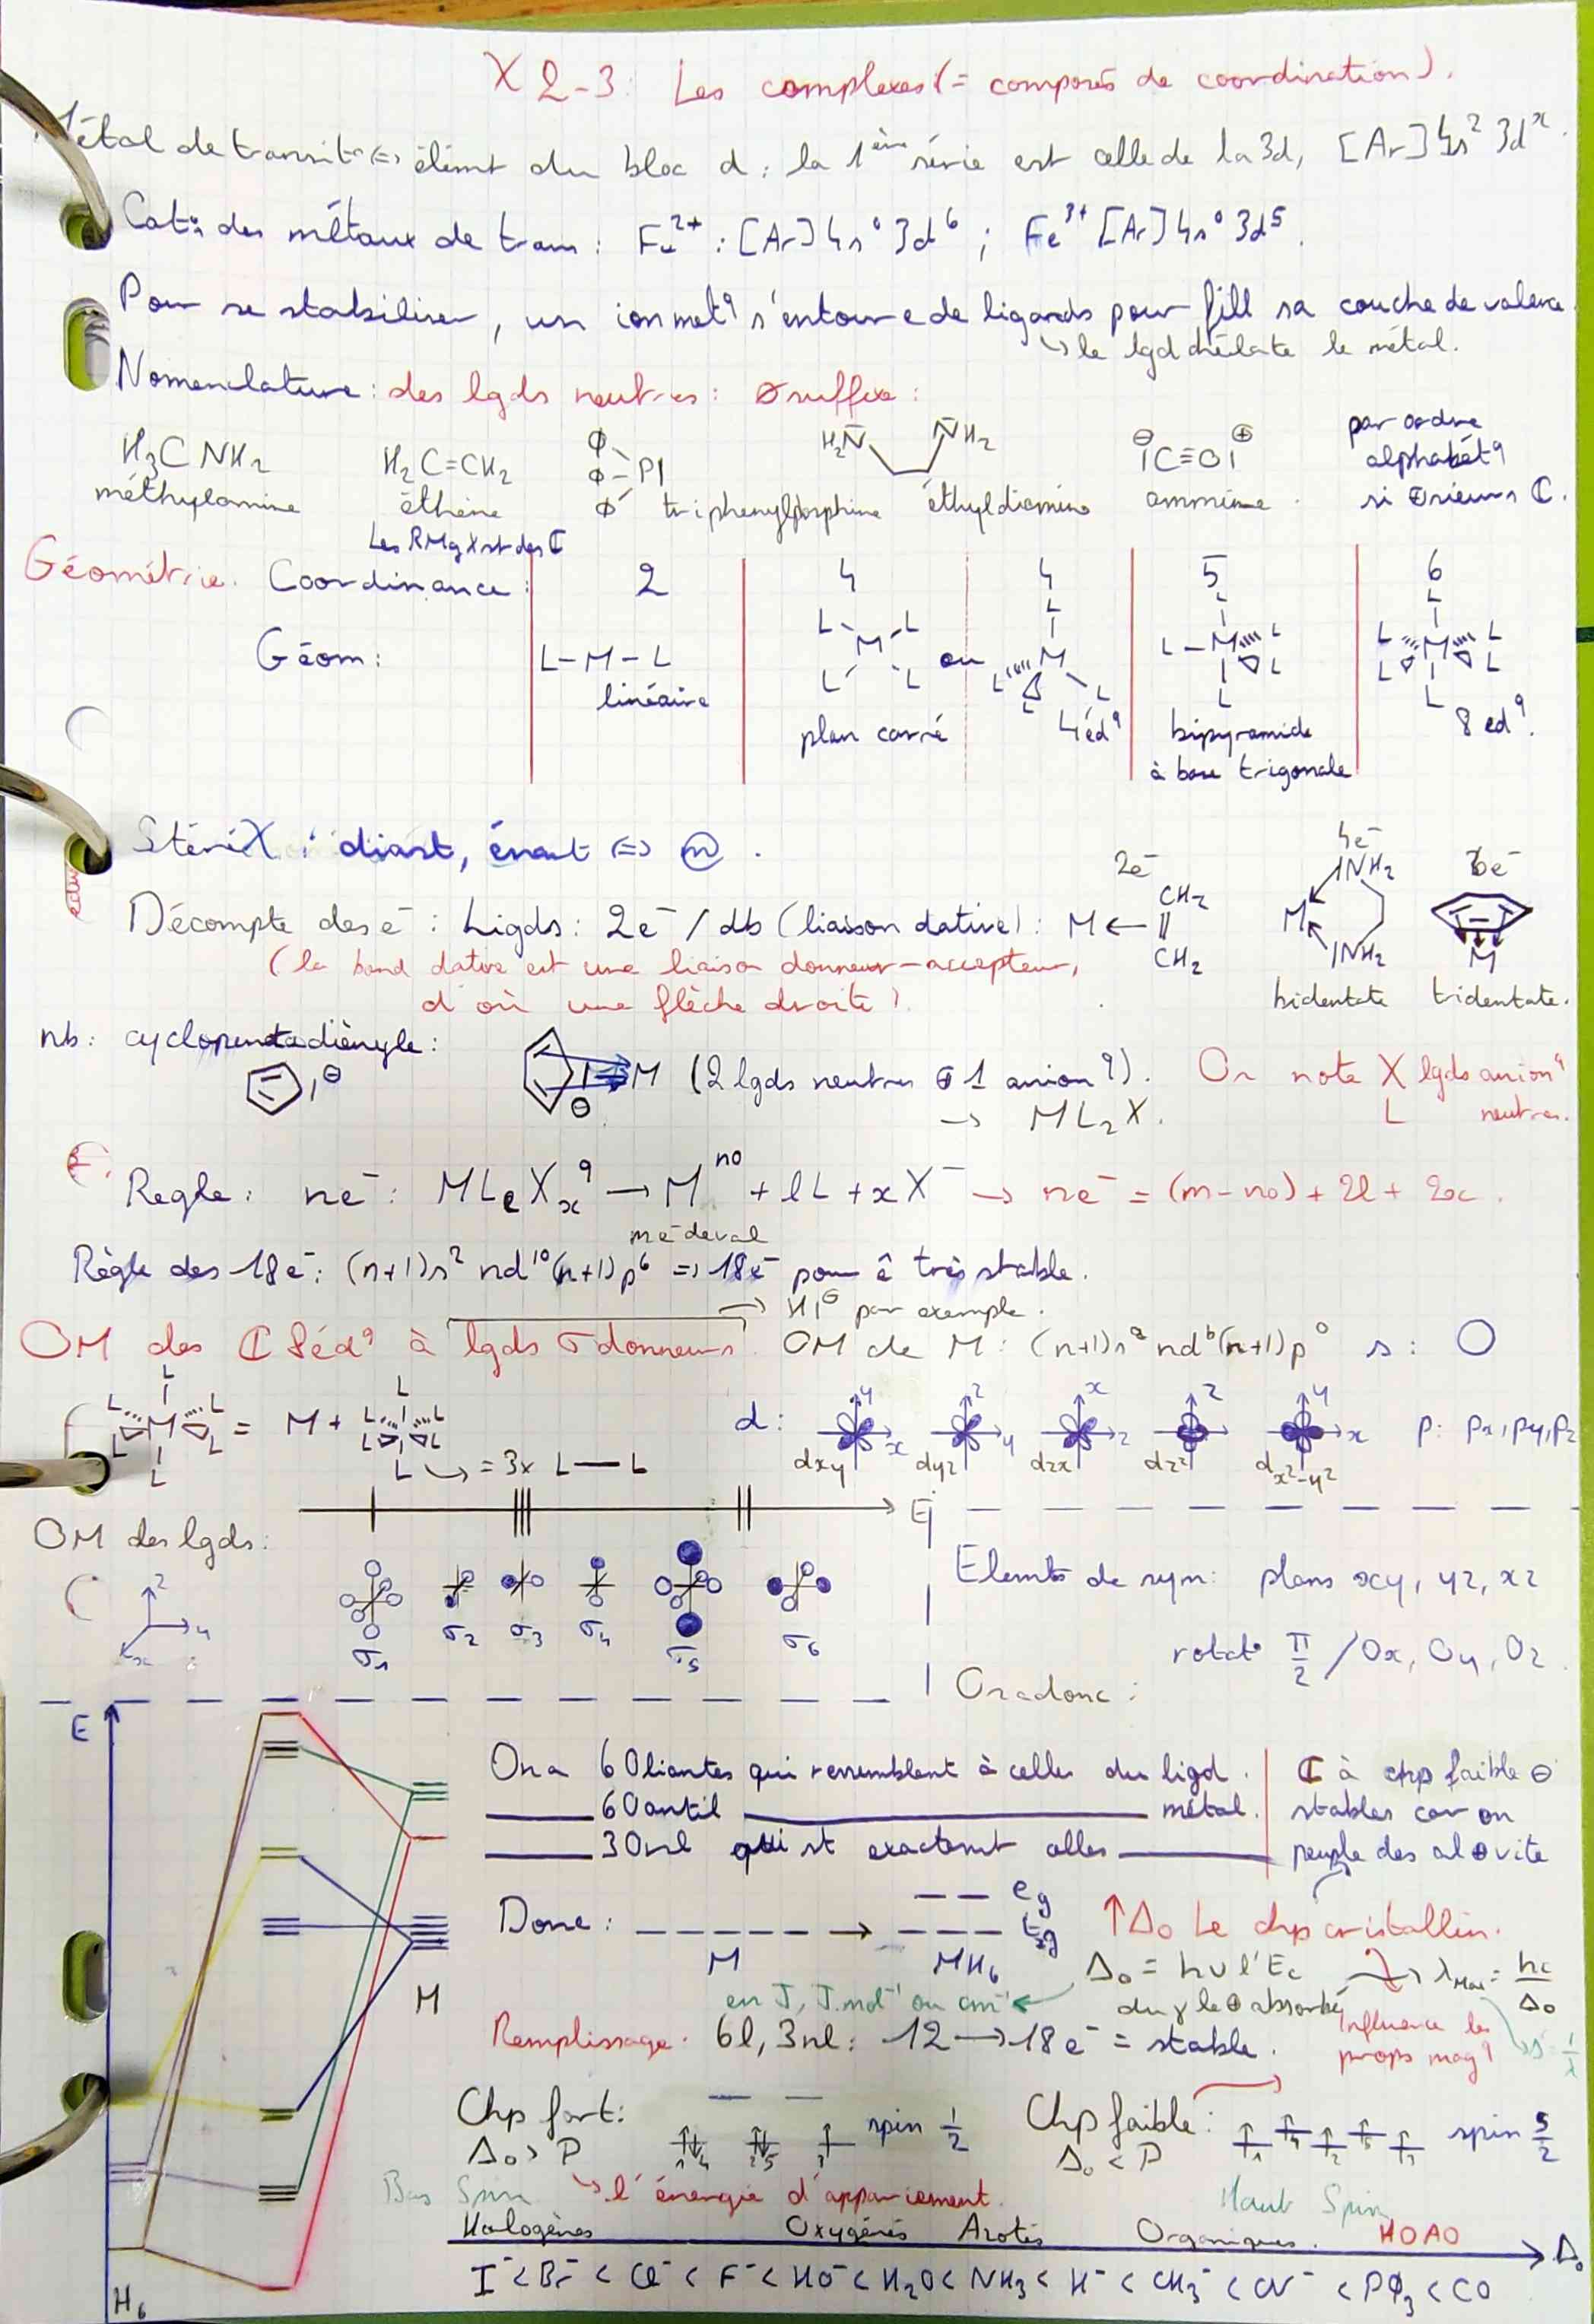 X 2-3: Les complexes (= composés de coordination).
Métal de transit° <=> élémt du bloc d : la 1ère série est celle de la 3d, [Ar] 4s² 3dˣ.
Cat°s des métaux de trans : Fe²⁺ : [Ar] 4s⁰ 3d⁶ ; Fe³⁺ [Ar] 4s⁰ 3d⁵.
Pour se stabiliser, un ion met^q s'entoure de ligands pour fill sa couche de valence.
↳ le lgd chélate le métal.
Nomenclature : des lgds neutres : ø suffixe :
H₃C NH₂ H₂C=CH₂ Φ Φ-P| Φ H₂N̄ N̄H₂ ⊖|C≡O|⊕ par ordre
méthylamine éthène triphenylphosphine éthyldiamine ammine alphabét^q
Les RMgX st des ℂ si ⊕sieurs ℂ.
Géométrie. Coordinance : 2 4 4 5 6
Géom : L-M-L ou
linéaire plan carré 4éd^q bipyramide à base trigonale 8éd^q.
StéréX : diast, énant <=> ⓜ.
Décompte des e⁻ : Ligds : 2e⁻ / db (liaison dative) : M ← CH₂ || CH₂ 2e⁻ 4e⁻ M |NH₂ |NH₂ 6e⁻ M
(la bond dative est une liaison donneur-accepteur,
d'où une flèche droite)
bidentate tridentate.
nb : cyclopentadiényle :
⊖ ⊖ M (2 lgds neutres ⊕ 1 anion^q). On note X lgds anion^q
→ ML₂X. L neutres.
Regle : ne⁻ : MLₗXₓ^q → M^no + lL + xX⁻ → ne⁻ = (m-no) + 2l + 2x.
m e⁻ de val
Règle des 18e⁻ : (n+1)s² nd¹⁰ (n+1)p⁶ => 18e⁻ pour ê très stable.
→ H|⊖ par exemple.
OM des ℂ 8éd^q à lgds σ donneurs. OM de M : (n+1)s² nd⁶ (n+1)p⁰ s : O
M = M + L L → = 3x L—L
d : dxy dyz dzx dz² dx²-y² p : px, py, pz
Ej
OM des lgds :
σ₁ σ₂ σ₃ σ₄ σ₅ σ₆
Elemts de sym : plans xy, yz, xz
rotat° π/2 / Ox, Oy, Oz.
On a donc :
E
On a 6 O liantes qui ressemblent à celles du ligd.
6 O antil métal.
3 O nl qui st exactemt celles
ℂ à chp faible ⊖
stables car on
peuple des al ⊕ vite
Donc : M → MH₆ eg t₂g
↑Δ₀ Le chp cristallin.
Δ₀ = hν l'Ec du γ le ⊕ absorbé λMax = hc/Δ₀
en J, J.mol⁻¹ ou cm⁻¹
Influence les props mag^q
M
Remplissage. 6l, 3nl : 12 → 18e⁻ = stable.
Chp fort : Δ₀ > P spin 1/2
Chp faible : Δ₀ < P spin 5/2
Bas Spin ↳ l'énergie d'appariement. Haut Spin
Halogènes Oxygénés Azotés Organiques. HOAO
Δ₀
I⁻ < Br⁻ < Cl⁻ < F⁻ < HO⁻ < H₂O < NH₃ < H⁻ < CH₃⁻ < CN⁻ < PΦ₃ < CO
H₆